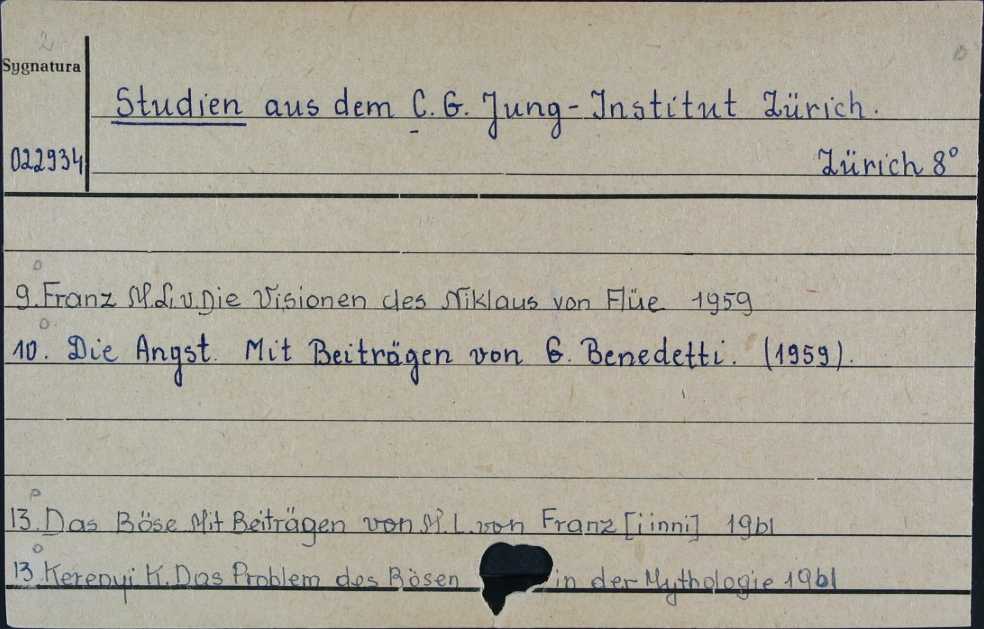 2
Sygnatura
Studien aus dem C. G. Jung-Institut Zürich.
022934
Zürich 8°
9. Franz M.L. v. Die Visionen des Niklaus von Flüe 1959
10. Die Angst. Mit Beiträgen von G. Benedetti. (1959).
13. Das Böse Mit Beiträgen von M. L. von Franz [i inni] 1961
13. Kerenyi K. Das Problem des Bösen in der Mythologie 1961